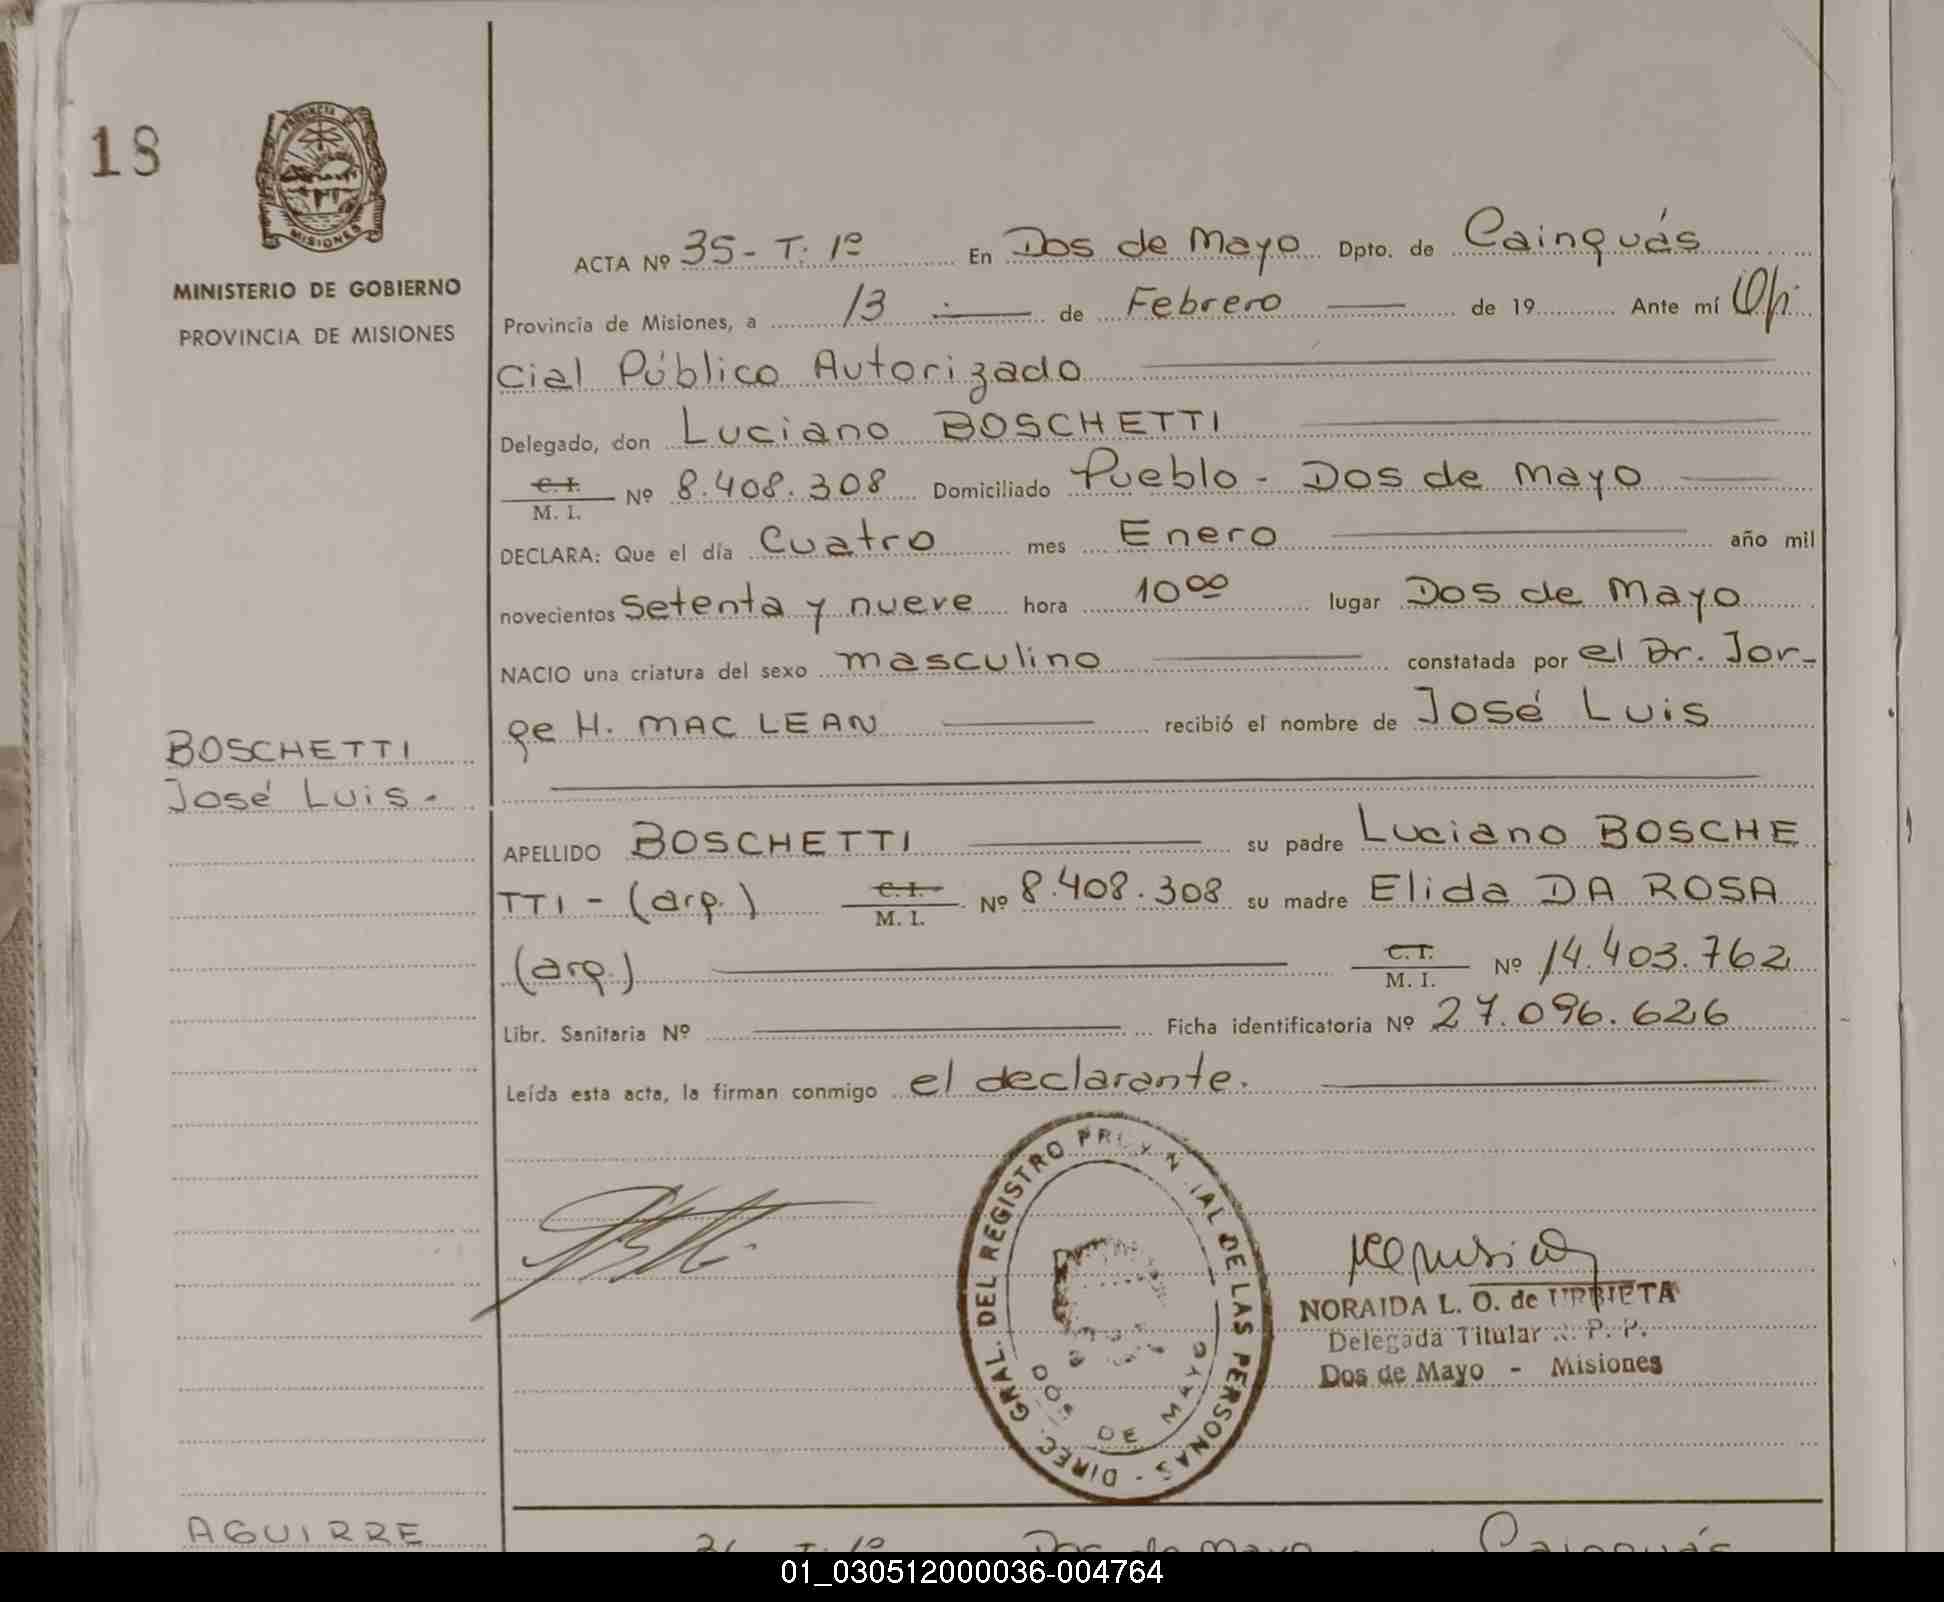 18
PROVINCIA DE
MISIONES
MINISTERIO DE GOBIERNO
PROVINCIA DE MISIONES
ACTA Nº 35 - T. 1º En Dos de Mayo Dpto. de Cainguás
Provincia de Misiones, a 13 de Febrero de 19 Ante mí Ofi
cial Público Autorizado
Delegado, don Luciano BOSCHETTI
C. I.
M. I. Nº 8.408.308 Domiciliado Pueblo - Dos de Mayo
DECLARA: Que el día Cuatro mes Enero año mil
novecientos setenta y nueve hora 10⁰⁰ lugar Dos de Mayo
NACIO una criatura del sexo masculino constatada por el Dr. Jor-
ge H. MAC LEAN recibió el nombre de José Luis
BOSCHETTI
José Luis.-
APELLIDO BOSCHETTI su padre Luciano BOSCHE
TTI - (arg.) C. I.
M. I. Nº 8.408.308 su madre Elida DA ROSA
(arg.) C. I.
M. I. Nº 14.403.762
Libr. Sanitaria Nº Ficha identificatoria Nº 27.096.626
Leída esta acta, la firman conmigo el declarante.
DIREC. GRAL. DEL REGISTRO PROVINCIAL DE LAS PERSONAS -
DOS DE MAYO
NORAIDA L. O. de URBIETA
Delegada Titular R. P. P.
Dos de Mayo - Misiones
AGUIRRE
Dos de Mayo Cainguás
01_030512000036-004764